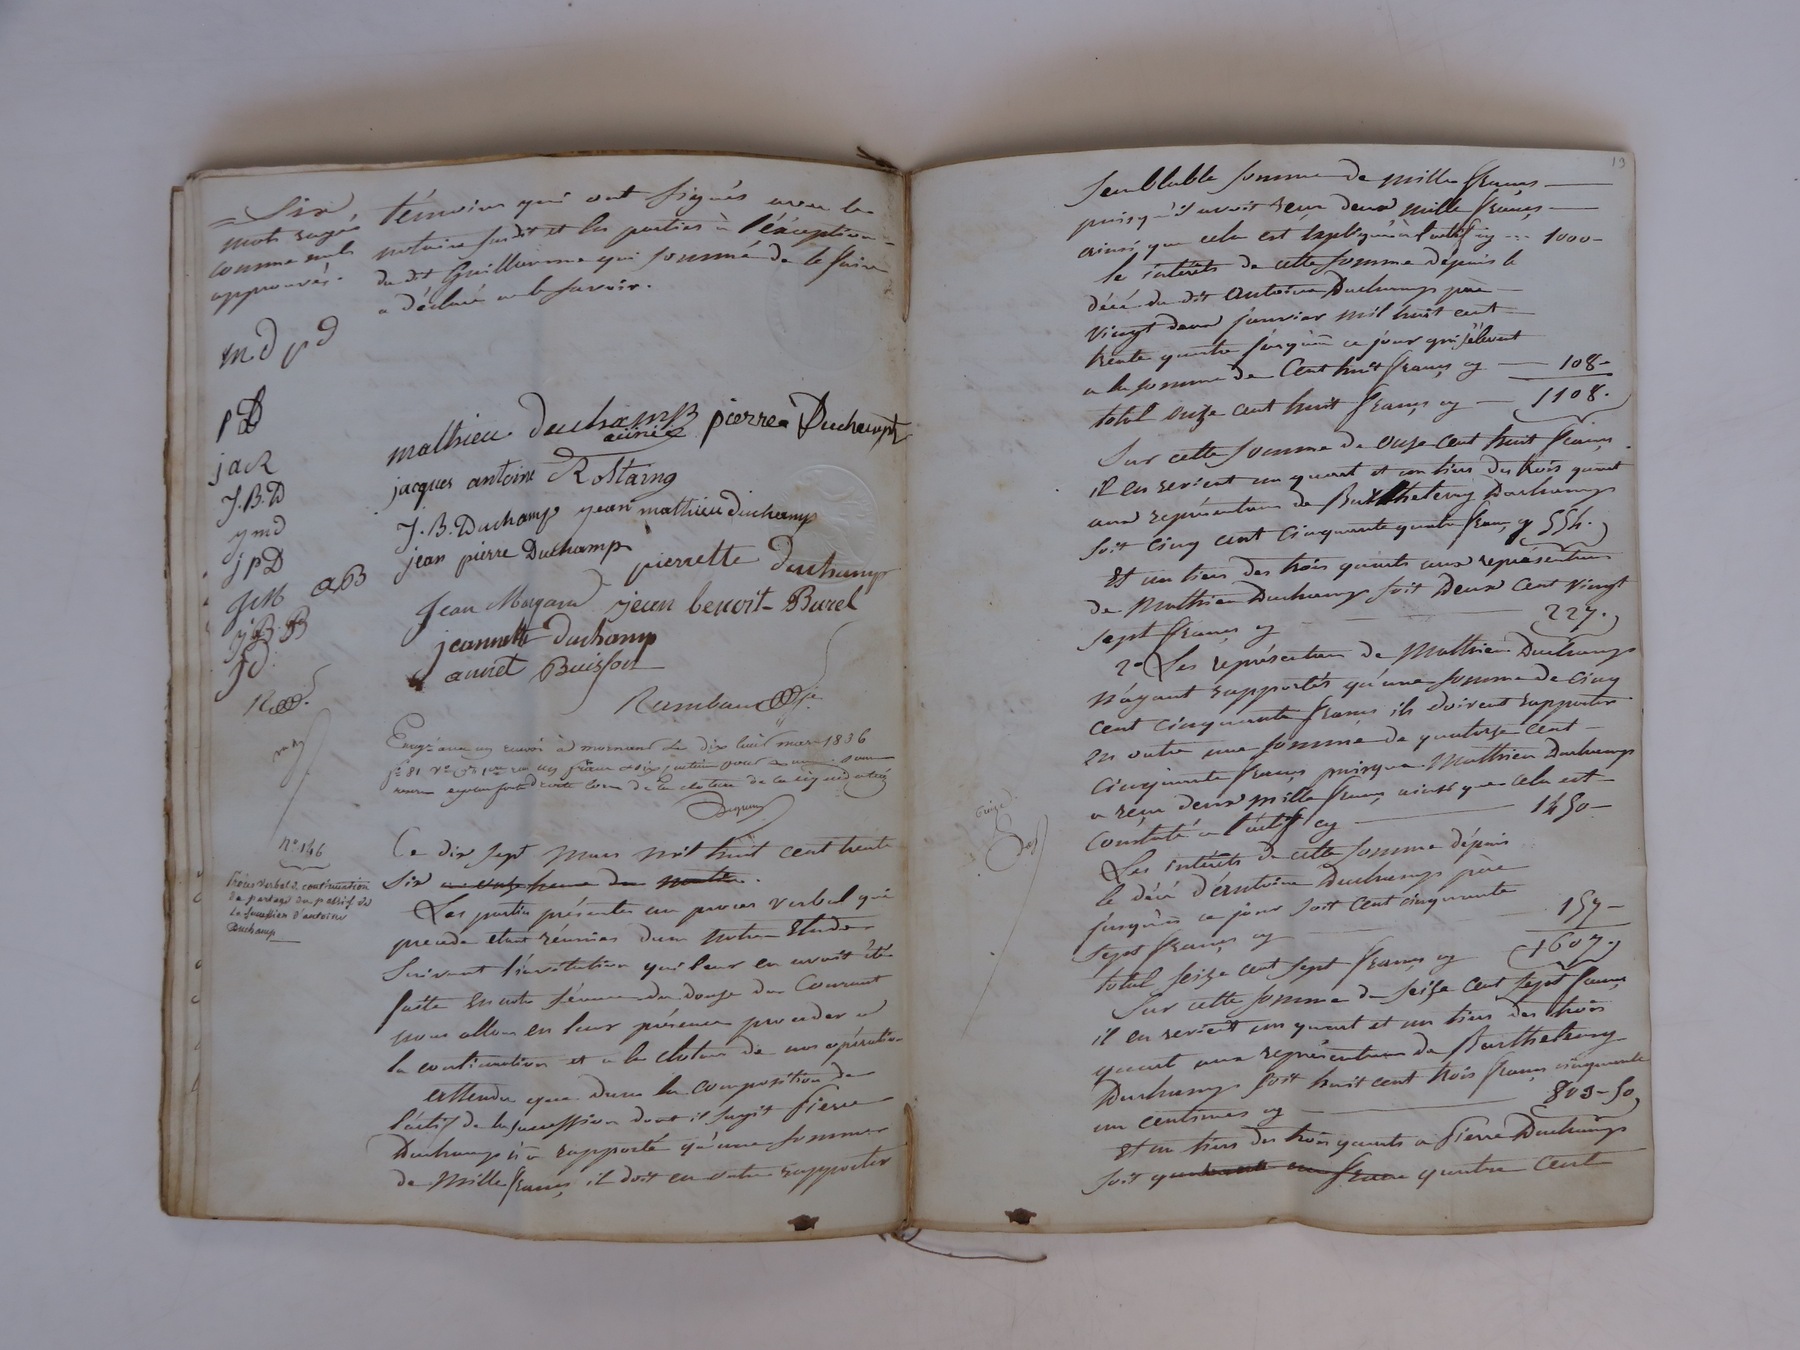 témoins qui ont signés avec le
notaire susdit et les parties à l'éxception
du dit Guillaume qui sommé de le faire
a déclaré ne le savoir.
= Six
mots rayés
comme nuls
approuvés.
md pd
pD
jacR
J.B.D
ymd
jpD
JM aB
jB B
jd
mathieu duchamp pierre Duchamp
ainée
jacques antoine Rostaing
J.B. Duchamp jean mathieu duchamp
jean pierre Duchamp
pierrette duchamp
Jean Magand jean benoit Burel
jeannette duchamp
Buisson
Rambaud
à mornant le dix huit mars 1836
de la cloture de la liquidation
n° 146
Procès verbal de continuation
de partage du passif de
la succession d'antoine
Duchamp
Ce dix sept mars mil huit cent trente
six
Les parties présentes au proces verbal qui
precede etant réunies dans notre Etude
suivant l'invitation qui leur en avoit été
faite en notre séance du douze du Courant
nous allons en leur présence proceder a
la continuation et a la cloture de nos opérations
attendu que dans la composition de
l'actif de la succession dont il sagit pierre
Duchamp n'a rapporté qu'une somme
de Mille francs il doit en outre rapporter
13
Semblable somme de mille francs
puisqu'il avoit reçu deux mille francs
ainsi que cela est expliqué à l'actif cy ... 1000-
le intérêts de cette somme dépuis le
décé du dit Antoine Duchamp père
vingt deux janvier mil huit cent
trente quatre jusqu'à ce jour qui s'élevent
a la somme de Cent huit francs cy — 108-
total onze cent huit francs cy — 1108.
Sur cette somme de onze cent huit francs
il en revient un quart et un tiers des trois quart
aux représentans de Barthelemy Duchamp
soit cinq cent cinquante quatre francs cy 554.
Et un tiers des trois quarts aux représentans
de Mathieu Duchamp soit Deux Cent vingt
sept francs cy — 227.
2° Les représentans de Mathieu Duchamp
n'ayant rapportés qu'une somme de Cinq
cent cinquante francs ils doivent rapporter
en outre une somme de quatorze cent
cinquante francs puisque Mathieu Duchamp
a reçu deux mille francs ainsi que cela est
constaté a l'actif cy — 1450-
Les intérêts de cette somme dépuis
le décé d'Antoine Duchamp père
jusqu'à ce jour soit cent cinquante
sept francs cy — 157-
total seize cent sept francs cy 1607.
Sur cette somme de seize cent sept francs
il en revient un quart et un tiers des trois
quart aux représentans de Barthelemy
Duchamp soit huit cent trois francs cinquante
centimes cy — 803-50
Et un tiers des trois quarts a pierre Duchamp
soit quarante un francs quatre cent